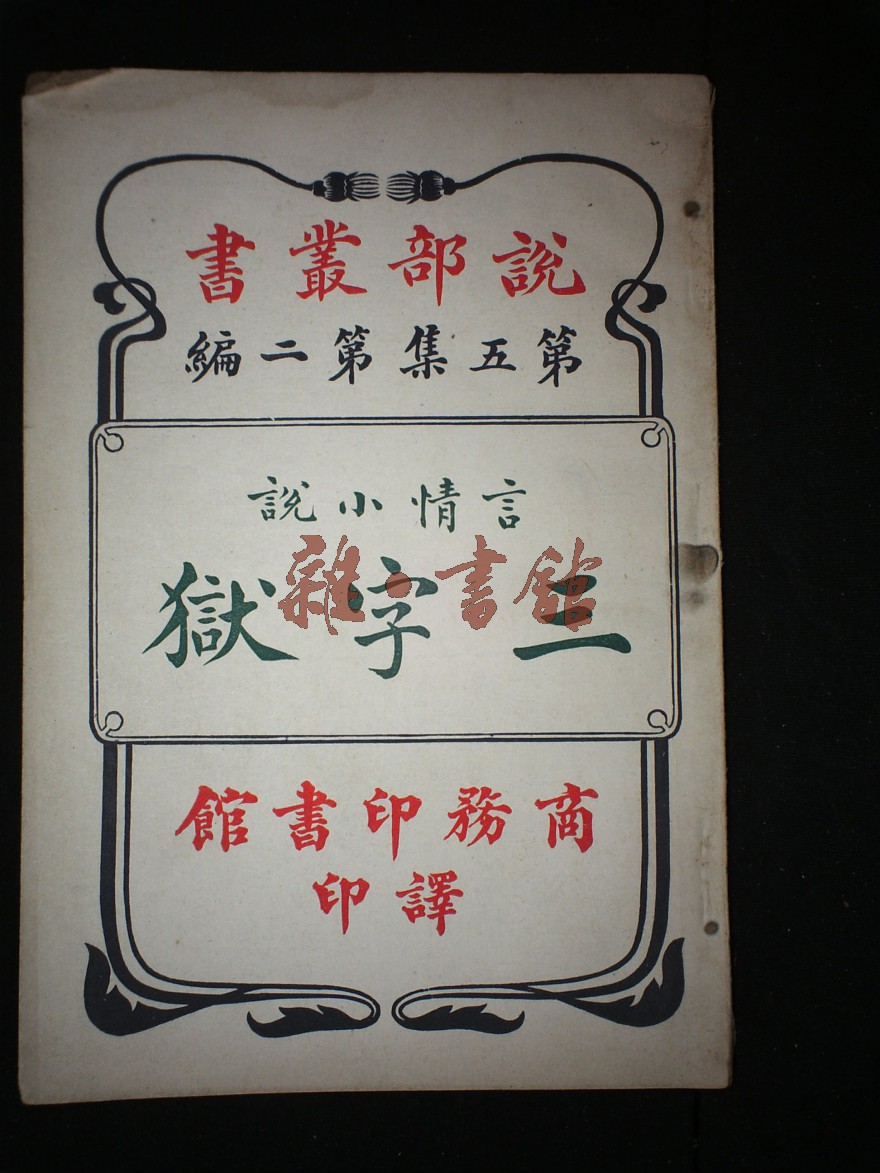 說部叢書
第五集第二編
言情小說
三字獄
雜·書館
商務印書館
譯印